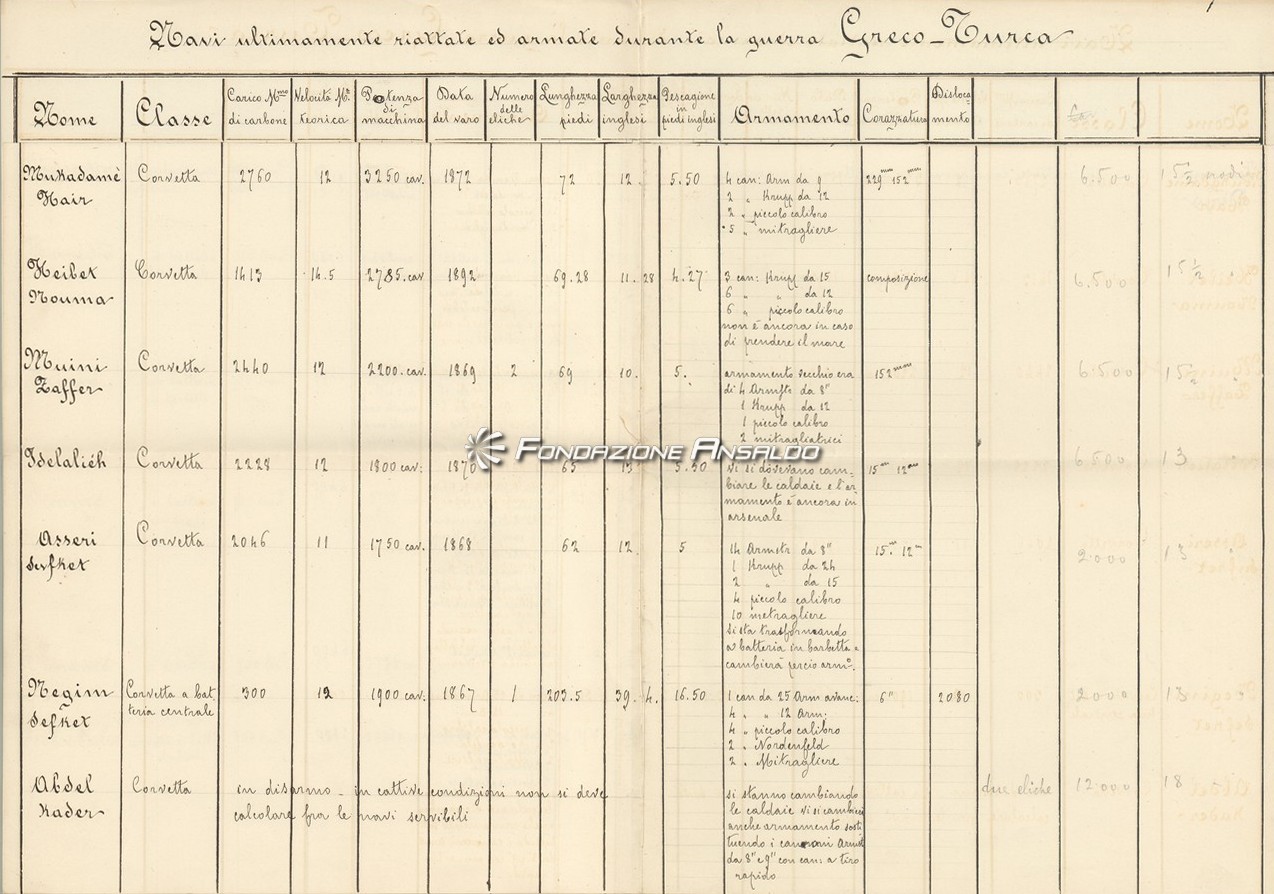 Navi ultimamente riattate ed armate durante la guerra Greco-Turca
Nome Classe Carico Mmo di carbone Velocità Ma teorica Potenza di macchina Data del varo Numero delle eliche Lunghezza piedi Larghezza inglesi Pescagione in piedi inglesi Armamento Corazzatura Disloca- mento
Mukadamè Corvetta 2760 12 3250 cav. 1872 72 12. 5.50 4 can: Arm da 9 229mm 152mm 6.500 15½ nodi
Hair 2 „ Krupp da 12
2 „ piccolo calibro
5 „ mitragliere
Heibet Corvetta 1413 14.5 2785. cav 1892 69.28 11.28 4.27 3 can: Krupp da 15 composizione 6.500 15½
Nouma 6 „ „ da 12
6 „ piccolo calibro
non è ancora in caso
di prendere il mare
Muini Corvetta 2440 12 2200. cav. 1869 2 69 10. 5. armamento vecchio era 152mm 6.500 15½
Zaffer di 4 Armstr da 8"
1 Krupp da 12
1 piccolo calibro
2 mitragliatrici
FONDAZIONE ANSALDO
Idelalich Corvetta 2228 12 1800 cav: 1870 65 13 5.50 vi si dovevano cam- 15m 12m 6500 13
biare le caldaie e l'ar-
mamento è ancora in
arsenale
Asseri Corvetta 2046 11 1750 cav. 1868 62 12. 5 14 Armstr da 8" 15m 12m 2000 13
Sefket 1 Krupp da 24
2 „ da 15
4 piccolo calibro
10 metragliere
si sta trasformando
a batteria in barbetta e
cambierà perciò armo.
Negim Corvetta a bat- 300 12 1900 cav: 1867 1 203.5 39.4. 16.50 1 can da 25 Arm avanc: 6" 2080 2000 13
Sefket teria centrale 4 „ „ 12 Arm.
4 „ piccolo calibro
2 „ Nordenfeld
2 „ Mitragliere
Abdel Corvetta in disarmo - in cattive condizioni non si deve si stanno cambiando due eliche 12000 18
Kader calcolare fra le navi servibili le caldaie vi si cambierà
anche armamento sosti
tuendo i cannoni Armst
da 8" e 9" con can: a tiro
rapido